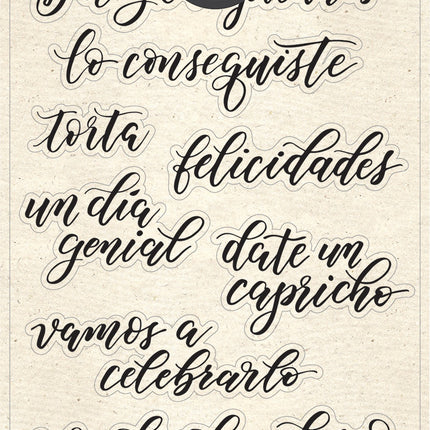 lo conseguiste
torta
felicidades
un día
genial
date un
capricho
vamos a
celebrarlo